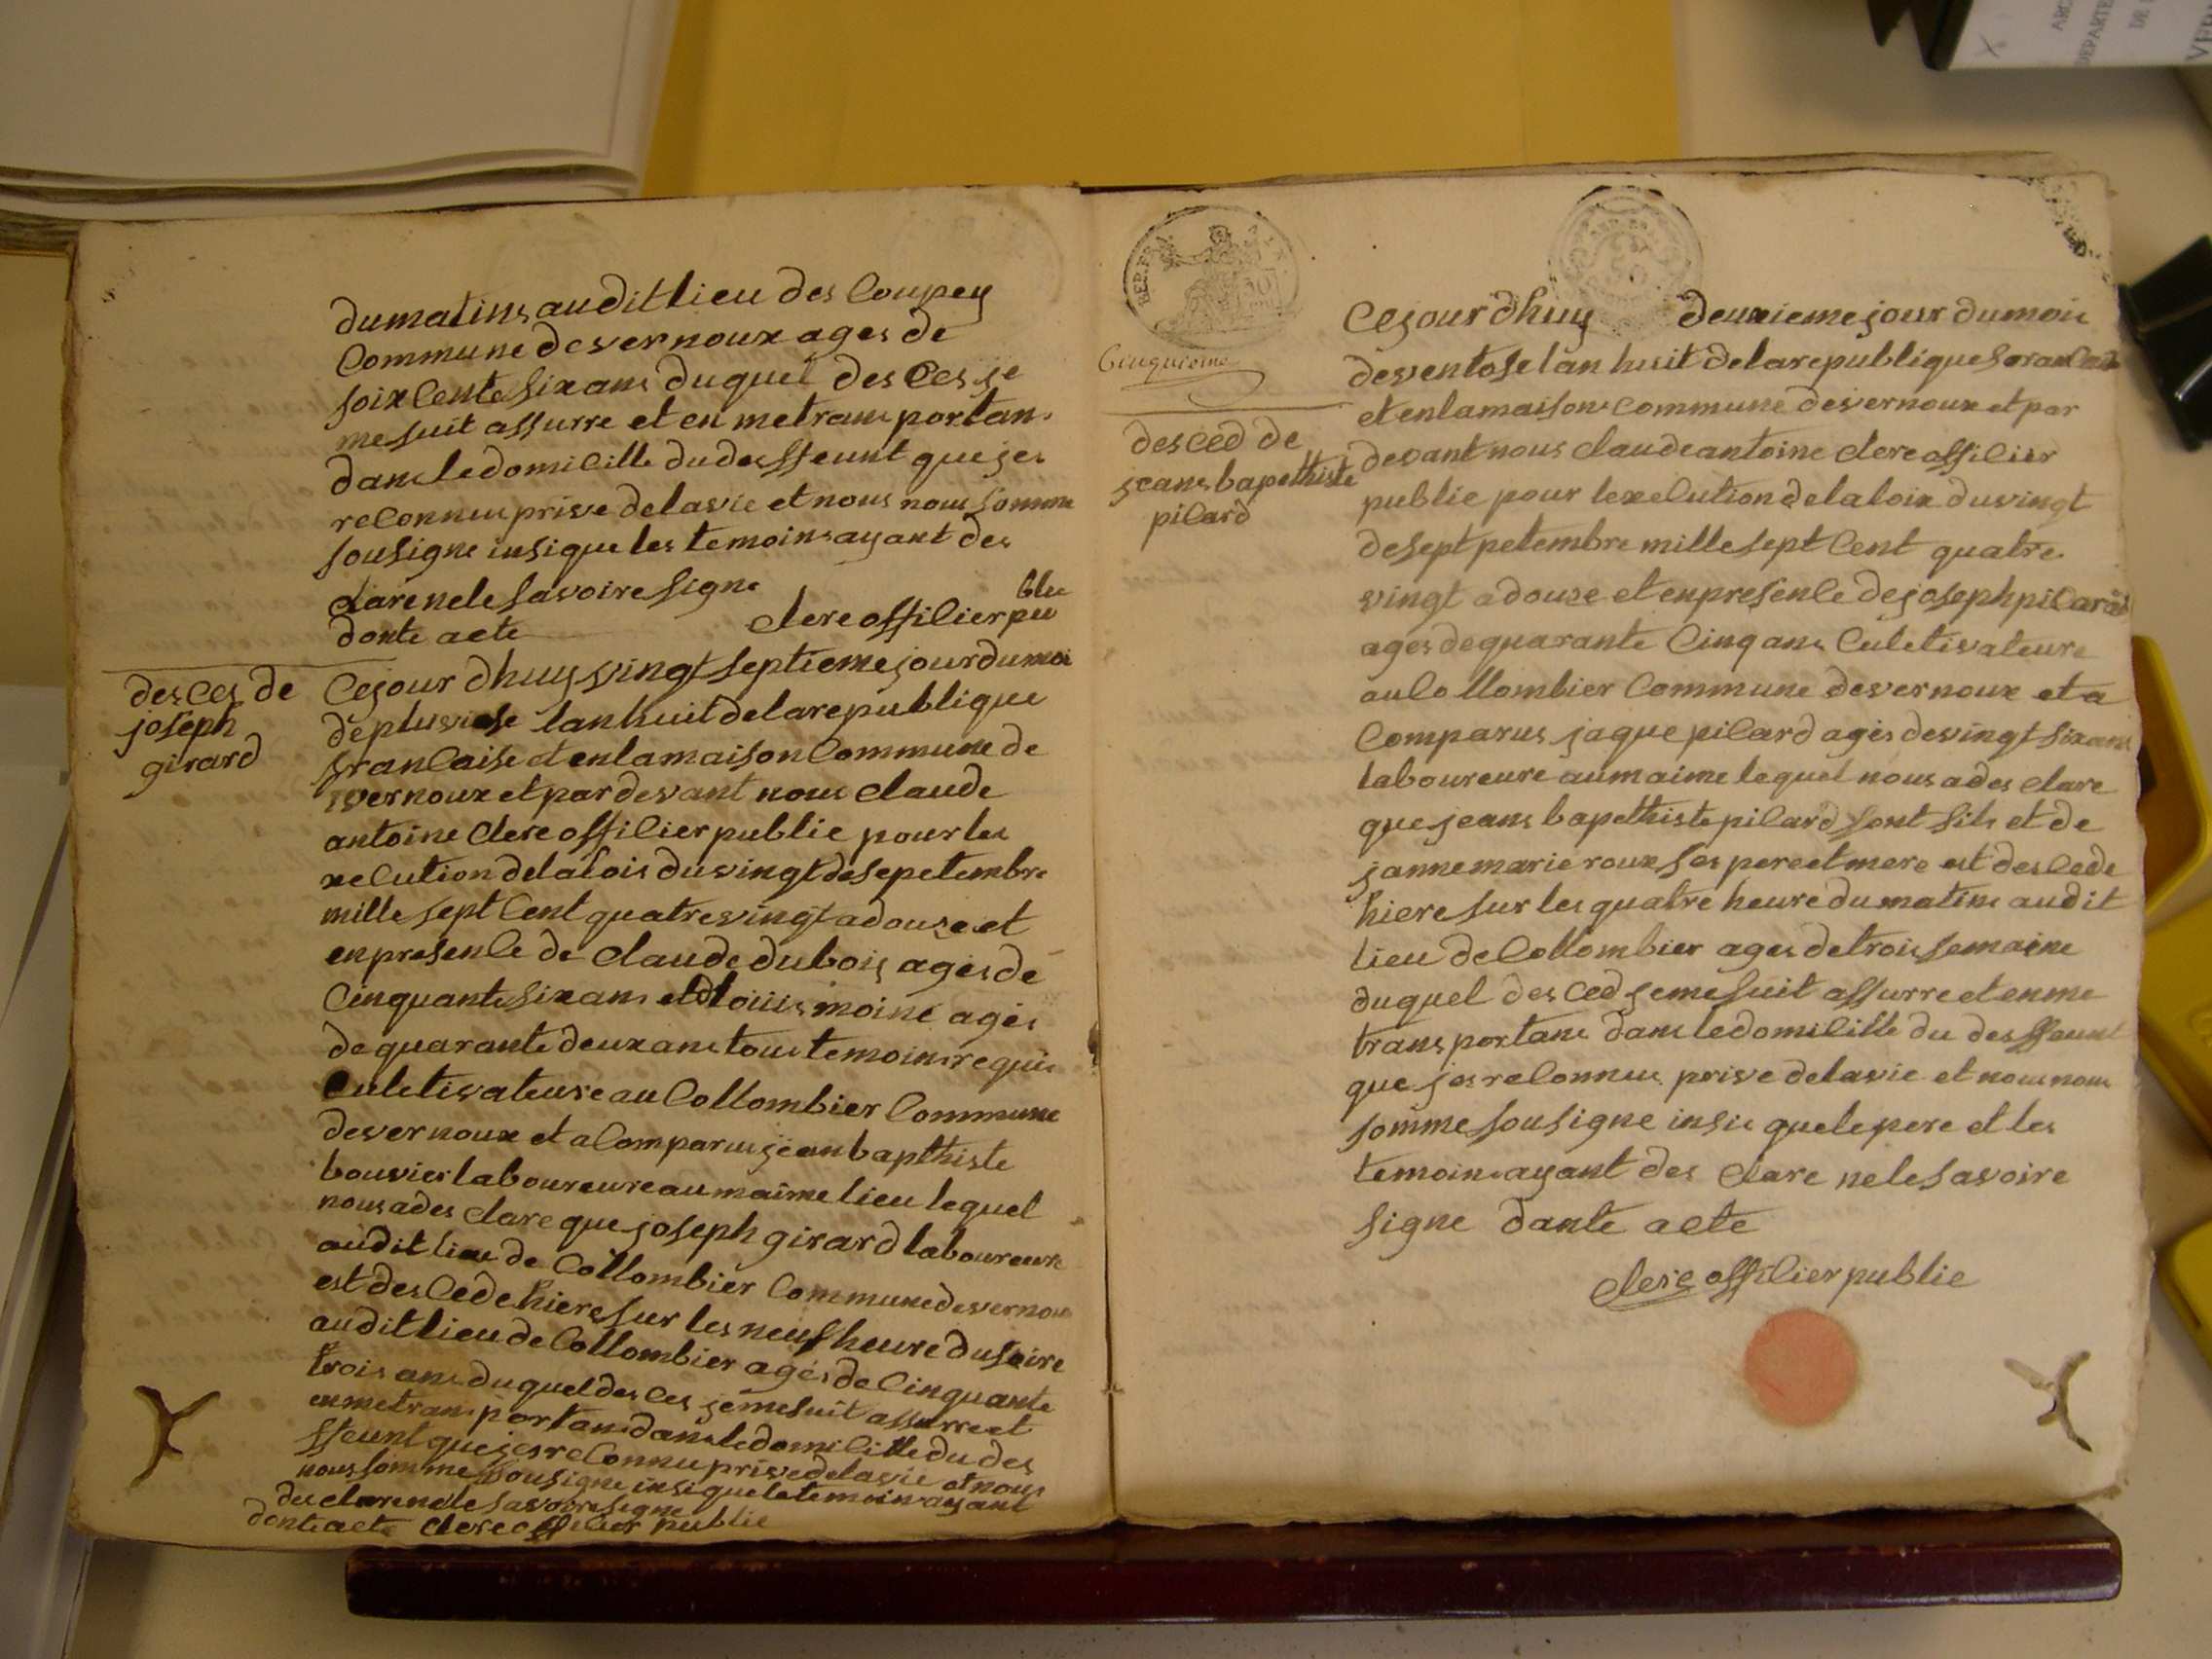 dumatins audit lieu des Coupey
Commune devernoux ages de
soixcente six ans duquel desces je
me suit assurre et en metrans portan
dans ledomicille du desffeunt que jes
reconnu prive delavie et nous nous somme
sousigne insique les temoins ayant des
clare nele savoire signe
donte acte clere officier pu
blic
desces de
joseph
girard
Cejour dhuy vingt septieme jour dumoi
depluviose lan huit delarepublique
francaise et enlamaison Commune de
vernoux et par devant nous claude
antoine clere officier public pour les
xecution delalois du vingt de sepetembre
mille sept Cent quatrevingt adouze et
en presence de claude dubois ages de
Cinquante six ans et louis moine ages
de quarante deux ans tous temoins requis
Culetivateure au Collombier Commune
devernoux et a Comparus jean bapthiste
bouvier laboureure au maime lieu lequel
nous ades clare que joseph girard laboureure
audit lieu de Collombier Commune devernoux
est descede hiere sur les neuf heure dusoire
audit lieu de Collombier ages de Cinquante
trois ans duquel desces jeme suit assurre et
en metrans portans dans ledomicille du des
ffeunt que jes reconnu prive delavie et nous
nous somme sousigne insique le temoin ayant
des clare nele savoire signe
donte acte clere officier public
REP. FRA.
Cinquieme
desced de
jeans bapethiste
pilard
Cejour dhuy deuxieme jour dumois
deventose lan huit delarepublique
et enlamaisons Commune devernoux et par
devant nous claude antoine clere officier
public pour lexecution delaloix duvingt
desept petembre mille sept Cent quatre
vingt a douze et enpresence de joseph pilard
ages dequarante Cinq ans Culetivateure
au Collombier Commune devernoux et a
Comparus jaque pilard ages devingt six ans
laboureure aumaime lequel nous ades clare
que jeans bapethiste pilard sont fils et de
janne marie roux ses pere et mere est descede
hiere sur les quatre heure dumatins audit
lieu de Collombier ages detrois semaine
duquel desced jeme suit assurre et enme
trans portans dans ledomicille du desffeunt
que jes reconnus prive delavie et nous nous
somme sousigne insis que lepere et les
temoins ayant des clare nele savoire
signe dante acte
clere officier public